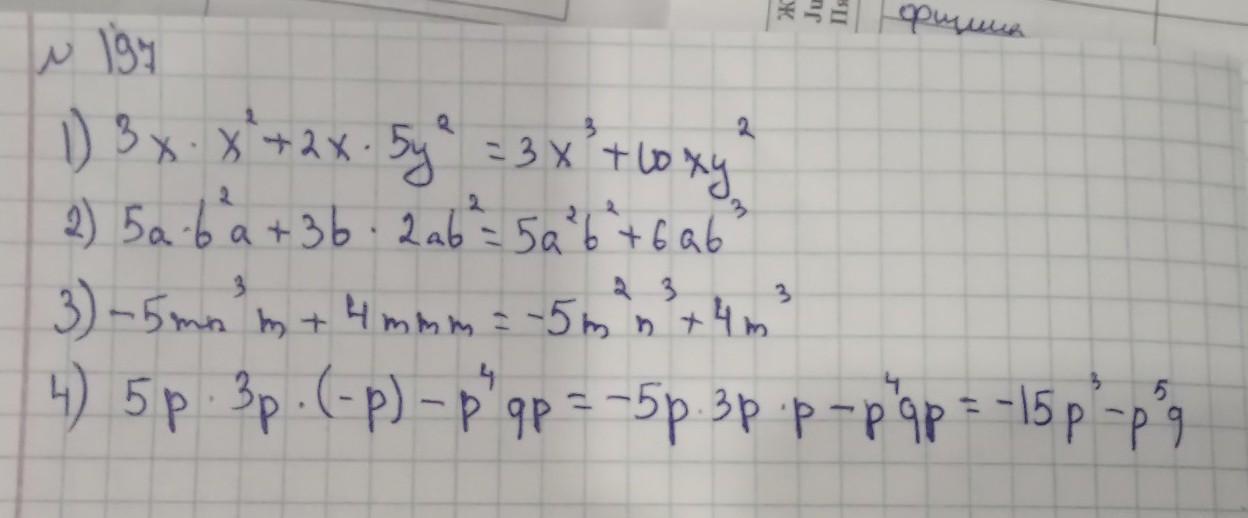 Ж
Ju
Пя
№ 197
1) 3x · x² + 2x · 5y² = 3x³ + 10xy²
2) 5a · b²a + 3b · 2ab² = 5a²b² + 6ab³
3) -5mn³m + 4mmm = -5m²n³ + 4m³
4) 5p · 3p · (-p) - p⁴qp = -5p · 3p · p - p⁴qp = -15p³ - p⁵q